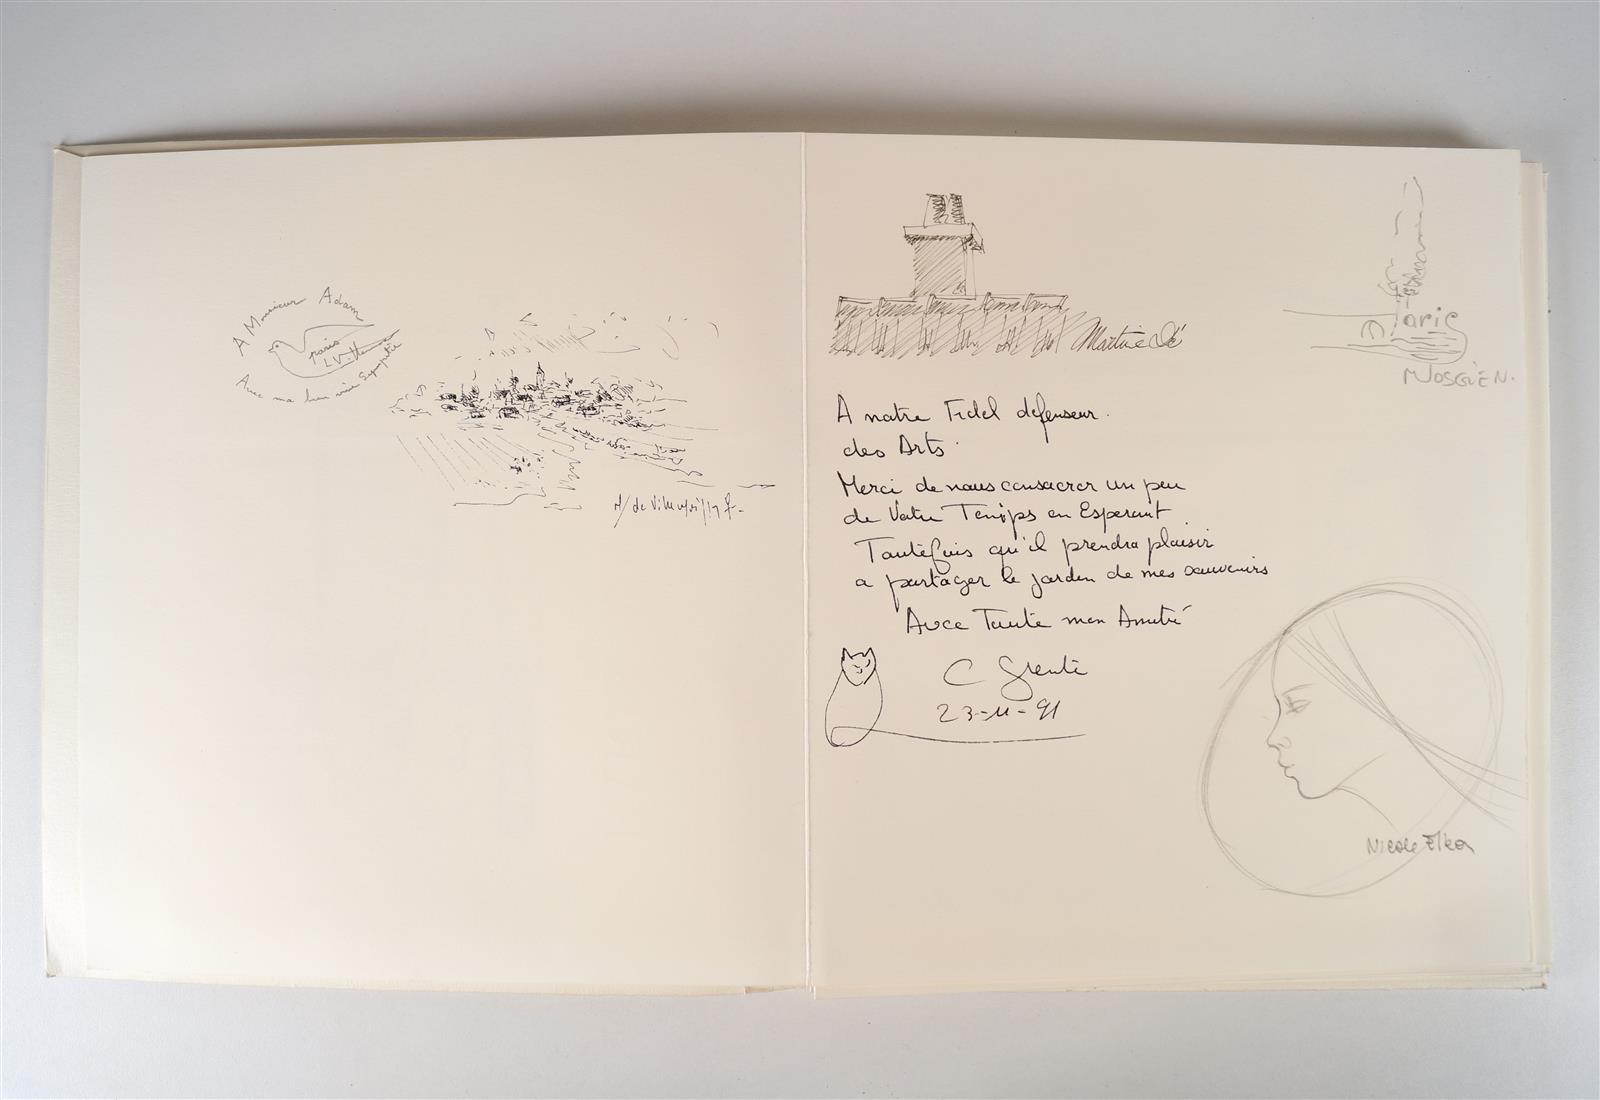 A Monsieur Adam
Paris
Avec ma bien vive Sympathie
Martine Clé
A notre Fidel défenseur.
des Arts.
Merci de nous consacrer un peu
de Votre Temps en Esperant
Toutefois qu'il prendra plaisir
a partager le jardin de mes souvenirs
Avec Toute mon Amitié
C Grente
23-11-91
Paris
M JOSGUËN.
Nicole Elkon